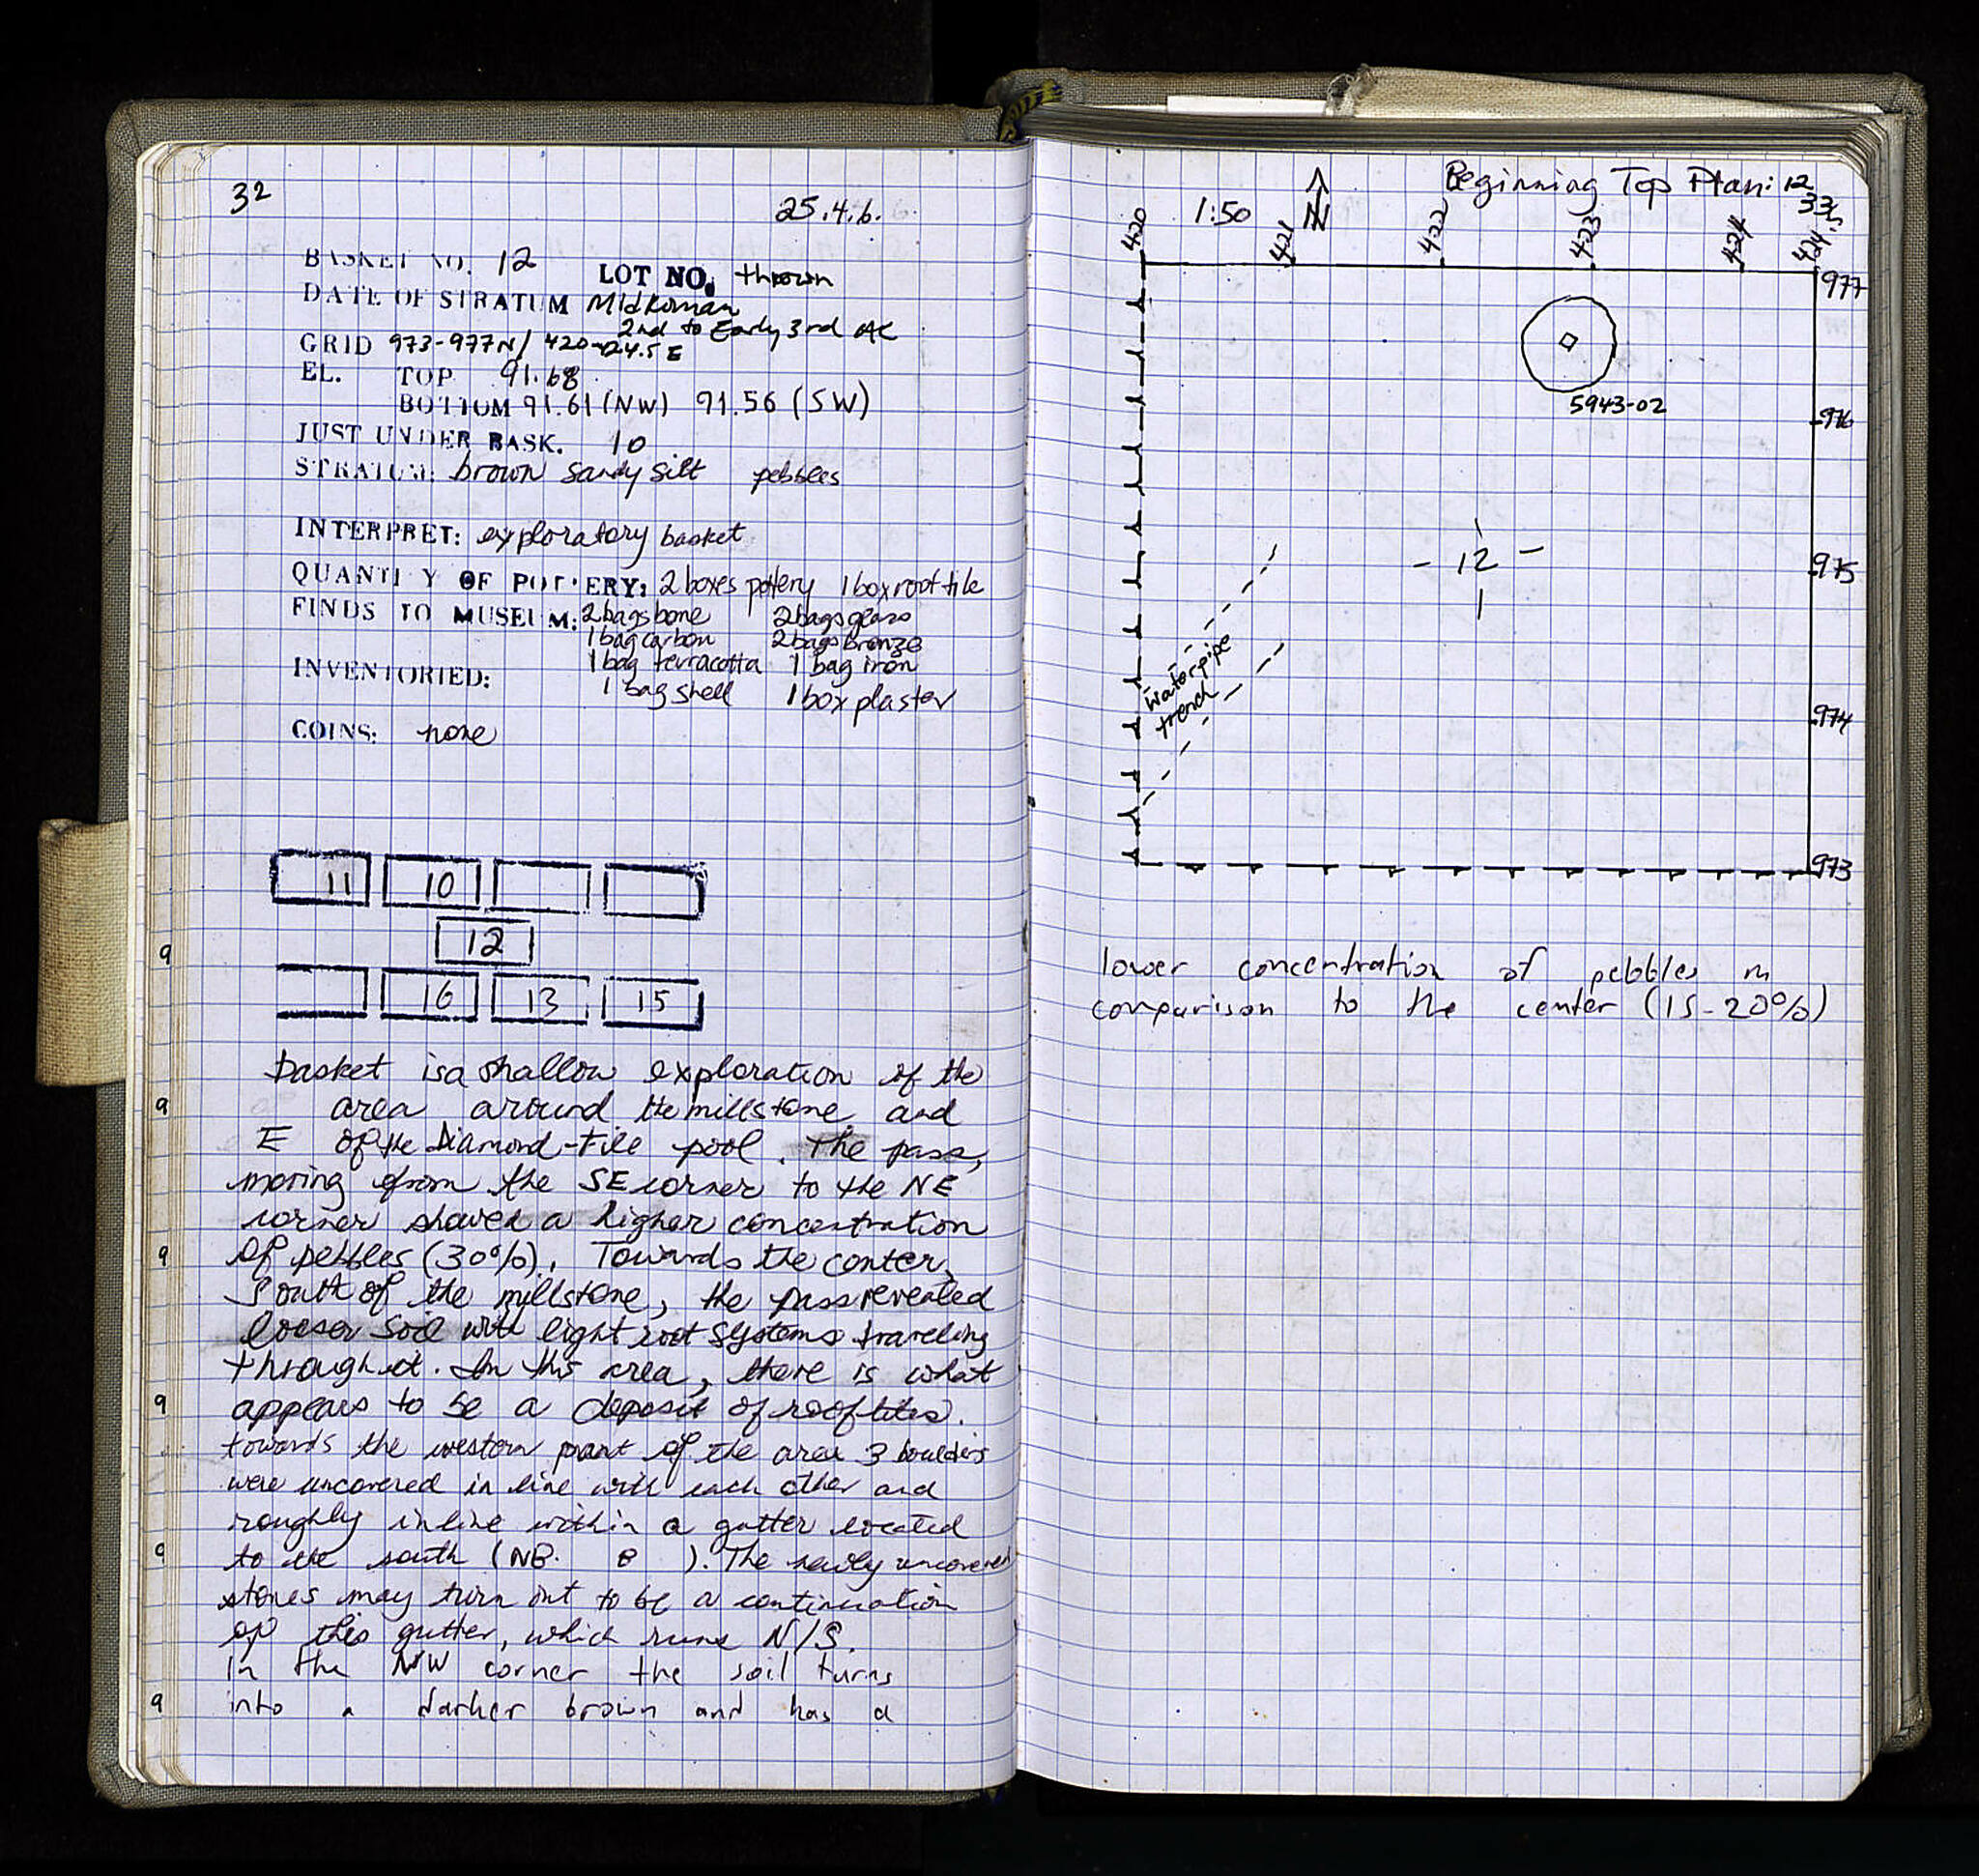 32
25.4.6.
BASKET NO. 12 LOT NO. thrown
DATE OF STRATUM Mid Roman
2nd to Early 3rd AC
GRID 973-977N/ 420-424.5 E
EL. TOP 91.68
BOTTOM 91.61 (NW) 91.56 (SW)
JUST UNDER BASK. 10
STRATUM: brown sandy silt pebbles
INTERPRET: exploratory basket
QUANTITY OF POTTERY: 2 boxes pottery 1 box roof tile
FINDS TO MUSEUM: 2 bags bone 2 bags glass
1 bag carbon 2 bags bronze
1 bag terracotta 1 bag iron
INVENTORIED:
1 bag shell 1 box plaster
COINS: none
11 10
12
16 13 15
basket is a shallow exploration of the
area around the millstone and
E of the Diamond-tile pool. The pass,
moving from the SE corner to the NE
corner showed a higher concentration
of pebbles (30%). Towards the center,
South of the millstone, the pass revealed
looser soil with light root systems traveling
through it. In this area, there is what
appears to be a deposit of rooftiles.
towards the western part of the area 3 boulders
were uncovered in line with each other and
roughly inline within a gutter located
to the south (NB. 8 ). The newly uncovered
stones may turn out to be a continuation
of this gutter, which runs N/S.
In the NW corner the soil turns
into a darker brown and has a
9
9
9
9
9
9
Beginning Top Plan: 12
33
1:50 N
420 421 422 423 424 424.5
977
5943-02
976
12
975
Waterpipe
trench
974
973
lower concentration of pebbles in
comparison to the center (15-20%)